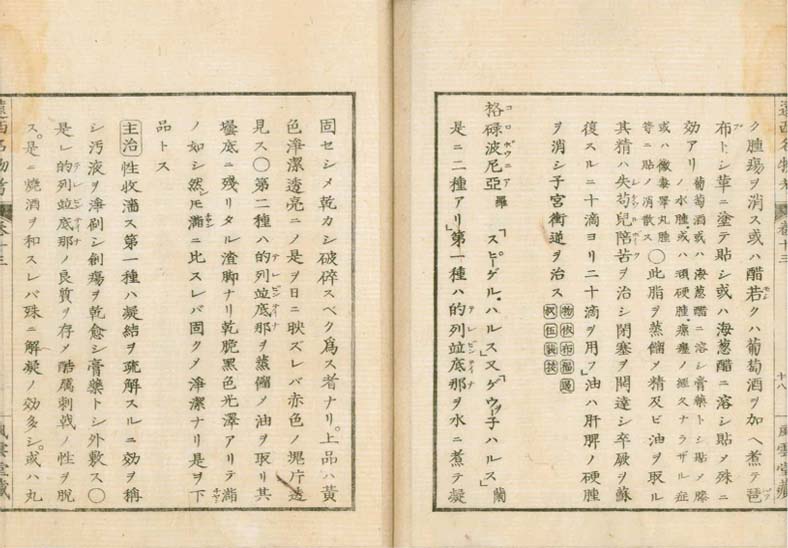 ク腫瘍ヲ消ス或ハ醋若クハ葡萄酒ヲ加ヘ煮テ琵
布トシ革ニ塗テ貼シ或ハ海葱醋ニ溶シ貼メ殊ニ
効アリ 葡萄酒或ハ海葱醋ニ溶シ膏藥トシ貼メ膝
ノ水腫或ハ頑硬腫瘰癧ノ經久ナラザル症
或ハ黴毒睾丸腫
等ニ貼ノ消散ス
〇此脂ヲ蒸餾メ精及ビ油ヲ取ル
其精ハ失苟兒陪苦ヲ治シ閉塞ヲ開達シ卒厥ヲ蘇
復スルニ十滴ヨリ二十滴ヲ用フ油ハ肝脾ノ硬腫
ヲ消シ子宮衝逆ヲ治ス
格碌波尼亞 羅 「スピーゲル・ハルス」又「ゲウヲ子ハルス」蘭
コロボウニア
是ニ二種アリ第一種ハ的列並底那ヲ水ニ煮テ凝
テレビンテイナ
固セシメ乾カシ破碎スベク爲ス者ナリ上品ハ黄
色淨潔透亮ニノ是ヲ日ニ映ズレバ赤色ノ堤片透
見ス〇第二種ハ的列並底那ヲ蒸餾メ油ヲ取リ其
テレビンテイナ
壜底ニ殘リタル渣脚ナリ乾脆黒色光澤アリテ瀝
ノ如シ然レモ瀝ニ比スレバ固クメ淨潔ナリ是ヲ下
品トス
主治 性收濇ス第一種ハ凝結ヲ疏解スルニ効ヲ稱
シ汚液ヲ淨刷シ創瘍ヲ乾愈シ膏藥トシ外敷ス〇
是レ的列並底那ノ良質ヲ存メ酷厲刺戟ノ性ヲ脱
テレビンテイナ
ス是ニ燒酒ヲ和スレバ殊ニ解凝ノ効多シ或ハ丸
遠西名物考
卷十三
十八
風雲堂藏
遠西名物考
卷十三
風雲堂藏